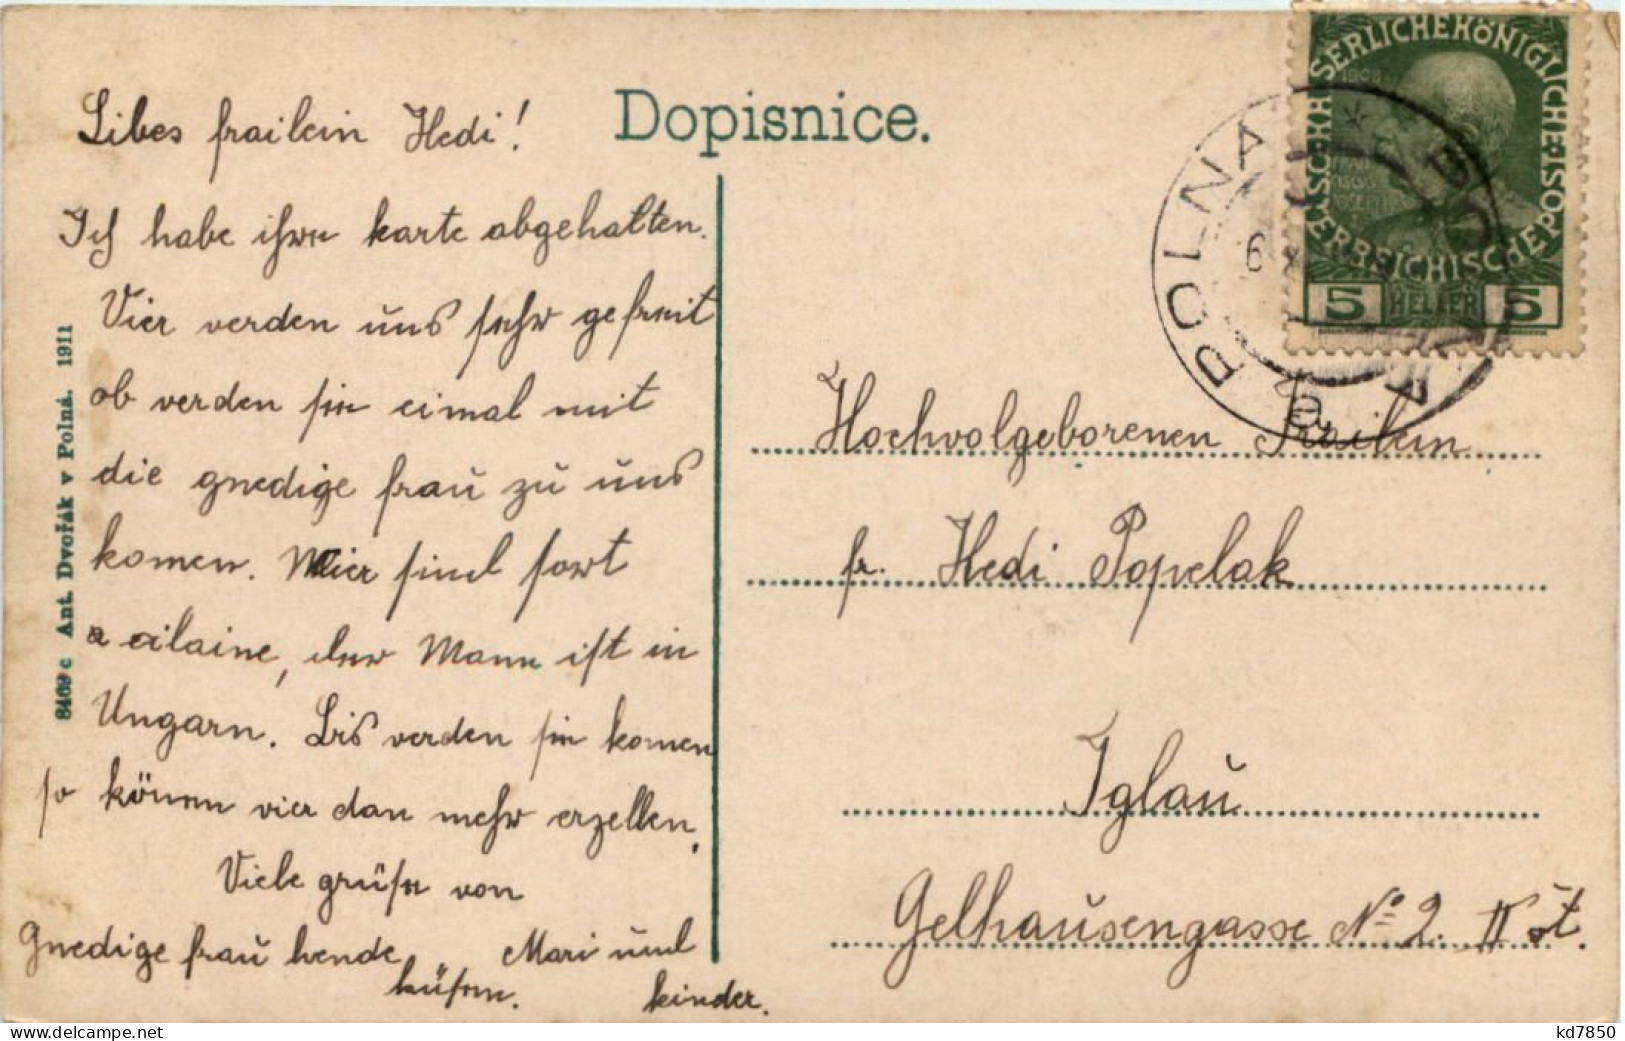 Dopisnice.
Libes frailein Hedi!
Ich habe ihre karte abgehalten.
Vier verden uns sehr gefreit
ob verden sie eimal mit
die gnedige frau zu uns
komen. Wier sind fort
a eilaine, der Mann ist in
Ungarn. Bis verden sie komen
so könen vier dan mehr erzellen.
Viele grüße von
Gnedige frau hende Mari und
küsen. kinder.
8469 c Ant. Dvořák v Polná. 1911
SERLICHEKÖNIGLICHE
ERREICHISCHEPOST
1908
5 HELLER 5
POLNA
6
Hochvolgeborenen Frailein
fr. Hedi Popelak
Iglau
Gelhausengasse No 2. II st.
www.delcampe.net
kd7850